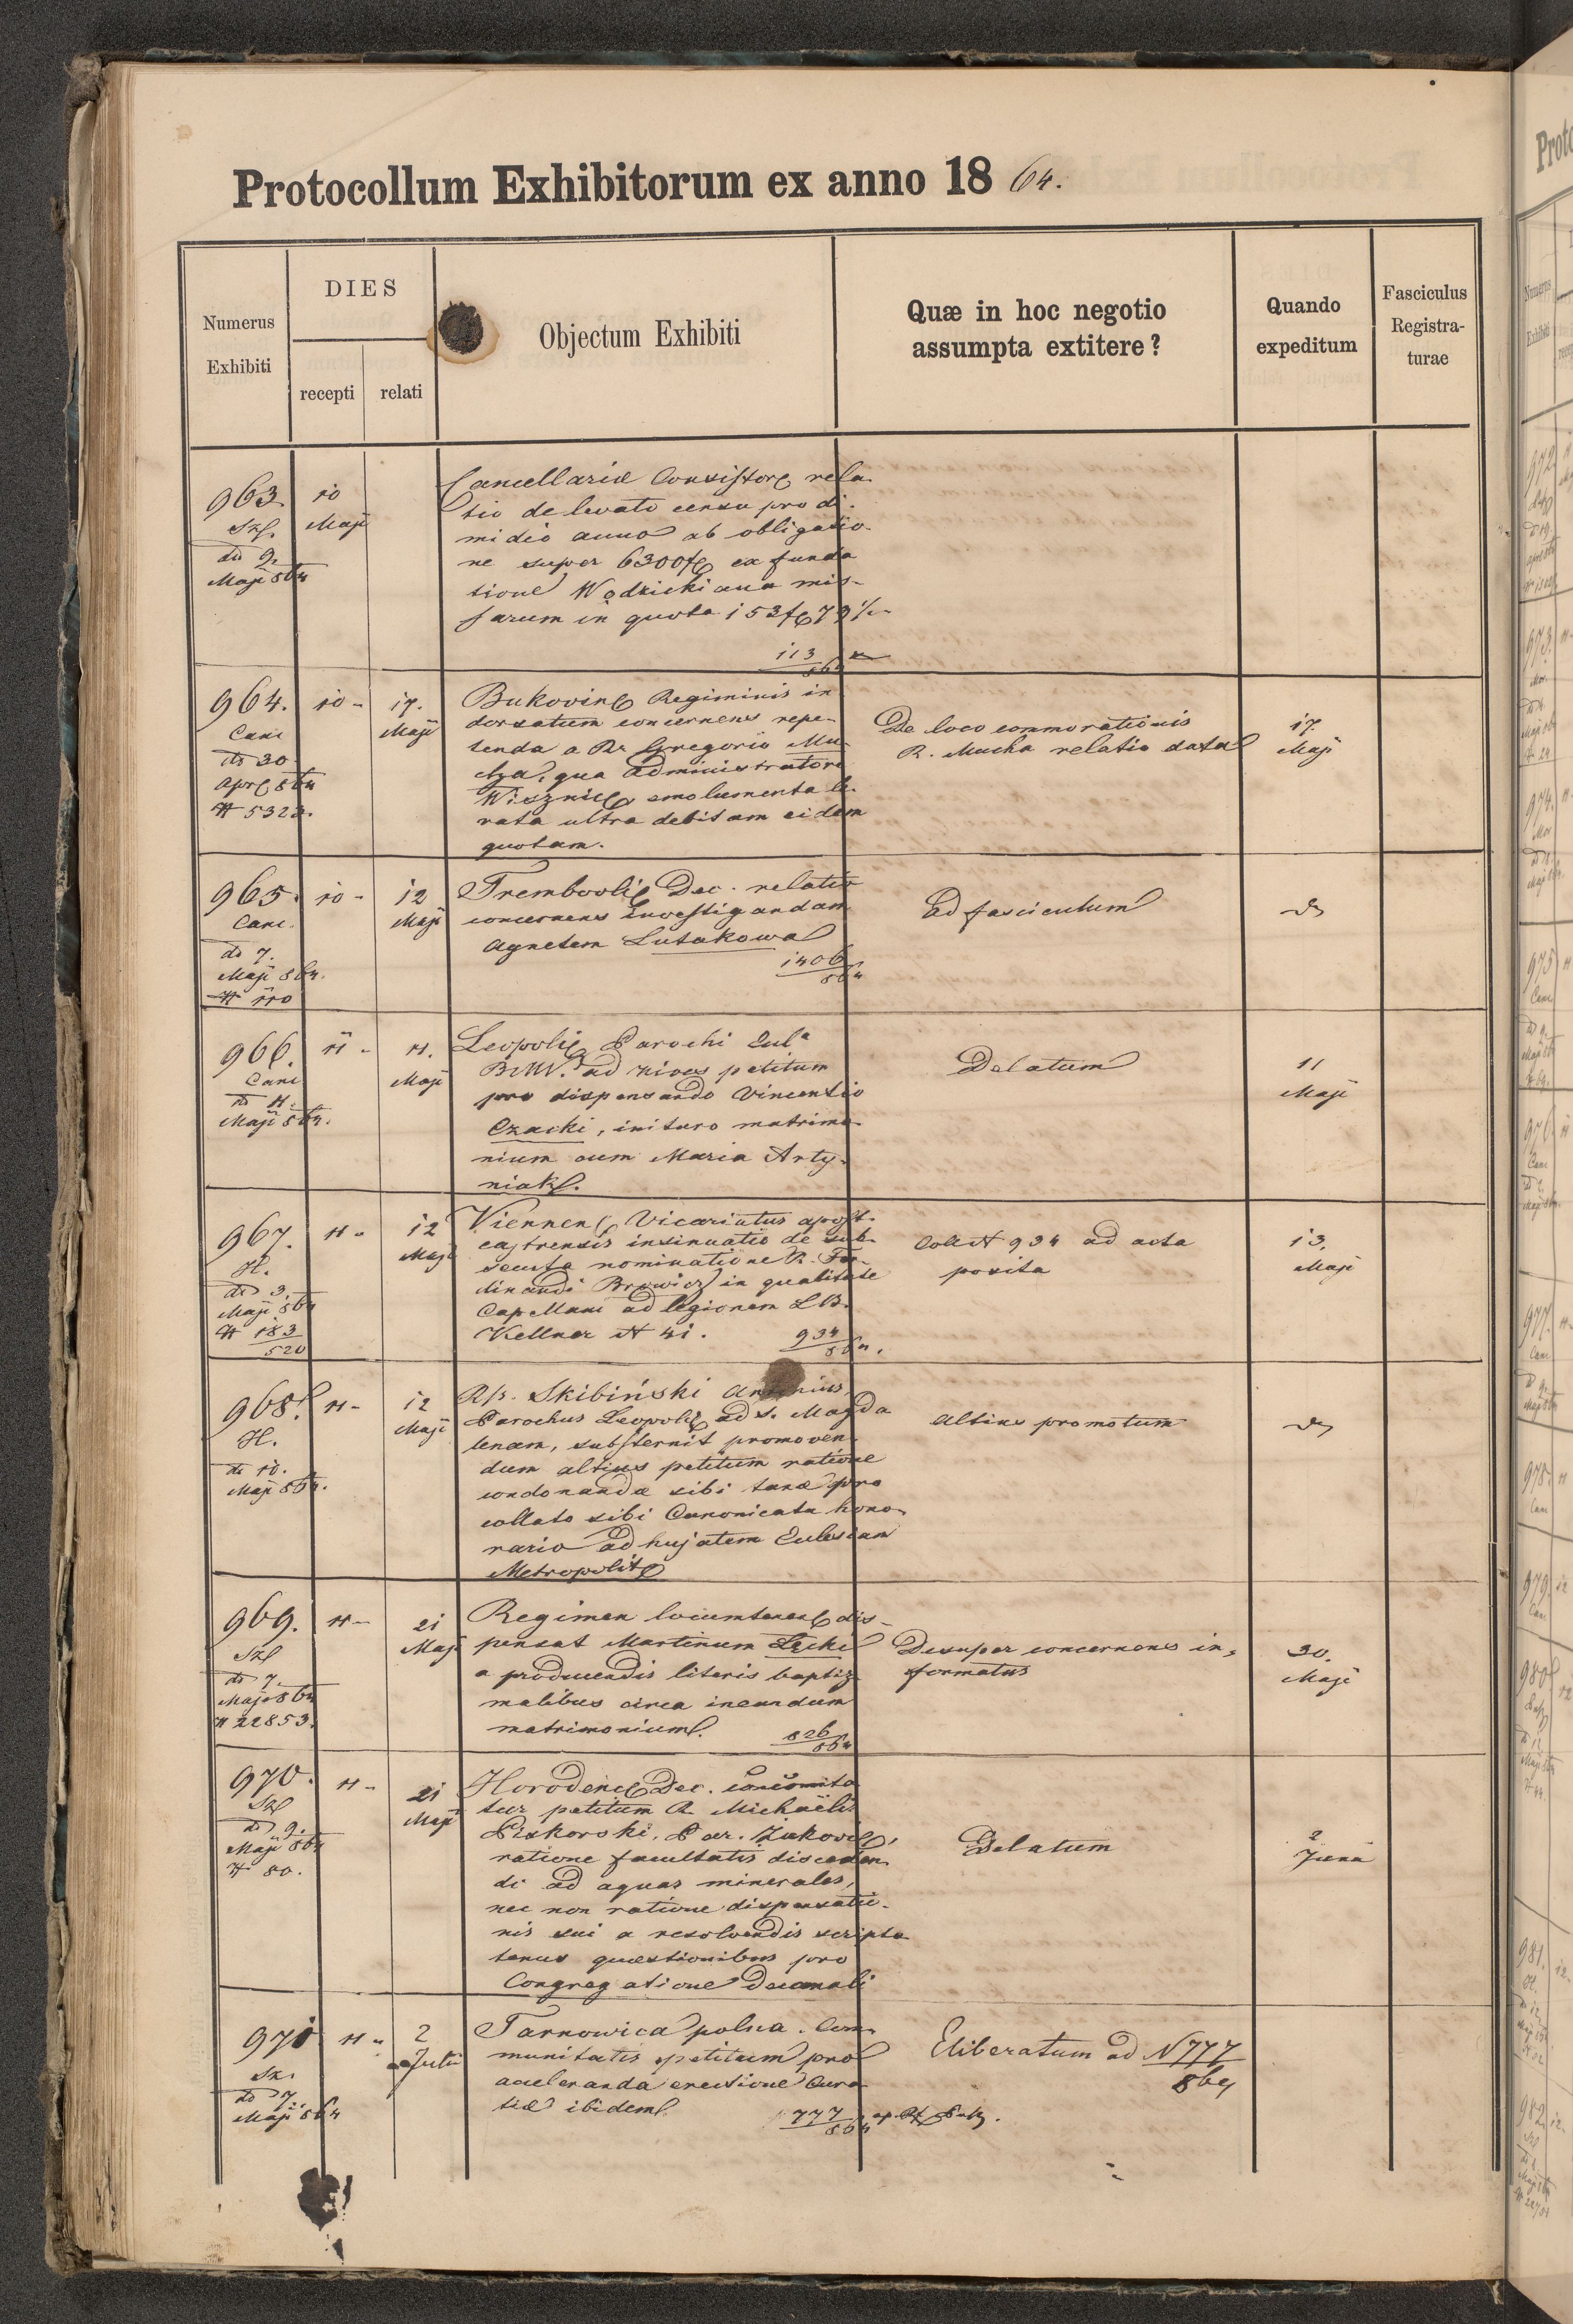 Protocollum Exhibitorum ex anno 18 64.
Numerus
Exhibiti
DIES
recepti
relati
Objectum Exhibiti
Quæ in hoc negotio
assumpta extitere?
Quando
expeditum
Fasciculus
Registra-
turae
963.
dto 9.
Maji 864
10
Maji
Cancellariæ Consistor rela
tio de levato censu pro di-
midio anno ab obligatio-
ne super 6300 ex funda
tione Wodzickiana mis-
sarum in quota 153 79
113
864
964.
Canc
dto 30
Apr 864
N 5323.
10 -
17.
Maji
Bukovin Regiminis in
dorsatum concernens repe-
tenda a R. Gregorio Mu-
cha, qua administratore
Wisznic emolumenta le-
vata ultra debitam eidem
quotam.
De loco commorationis
R. Mucha relatio data
17.
Maji
965.
Canc.
dto 7.
Maji 864.
N 110
10 -
12
Maji
Trembovli Dec. relatio
concernens investigandam
Agnetem Lutakowa
1406
864
ad fasciculum
966.
Canc
dto 11.
Maji 864.
11 -
11.
Maji
Leopoli Parochi Eccl
BMV. ad nives petitum
pro dispensando Vincentio
Czacki, inituro matrimo-
nium cum Maria Arty-
niak.
Delatum
11
Maji
967.
H.
dto 3.
Maji 864
N 183
520
11 -
12
Maji
Viennen Vicariatus apost.
castrensis insinuatio de sub-
secuta nominatione R. Fer-
dinandi Browicz in qualitate
Capellani ad legionem LB.
Kellner N 41.
934
864.
Coll N 934 ad acta
posita
13.
Maji
968.
H.
dto 10.
Maji 864.
11 -
12
Maji
Skibiński Antonius
Parochus Leopoli ad S. Magda
lenam, substernit promoven-
dum altius petitum ratione
condonandæ sibi taxæ pro
collato sibi Canonicatu hono-
rario ad hujatem Ecclesiam
Metropolit
altius promotum
969.
dto 7.
Maji 864
N 22853.
11 -
21
Maji
Regimen locumtenen dis-
pensat Martinum Lecki
a producendis literis baptiz
malibus circa ineundum
matrimonium.
826
864
Desuper concernens in-
formatus
30.
Maji
970.
dto 9.
Maji 864
N 80.
11 -
21
Maji
Horoden Dec. concomita
tur petitum R. Michaëlis
Piskorski, Par. Żukov,
ratione facultatis disceden-
di ad aquas minerales,
nec non ratione dispensatio-
nis sui a resolvendis scripto
tenus quæstionibus pro
Congregatione Decanali
Delatum
2
Junii
971
dto 7.
Maji 864
11 -
2
Julii
Tarnowica polna. Com-
munitatis petitum pro
acceleranda erectione Cura
tiæ ibidem.
777
864
Eliberatum ad N 777
864